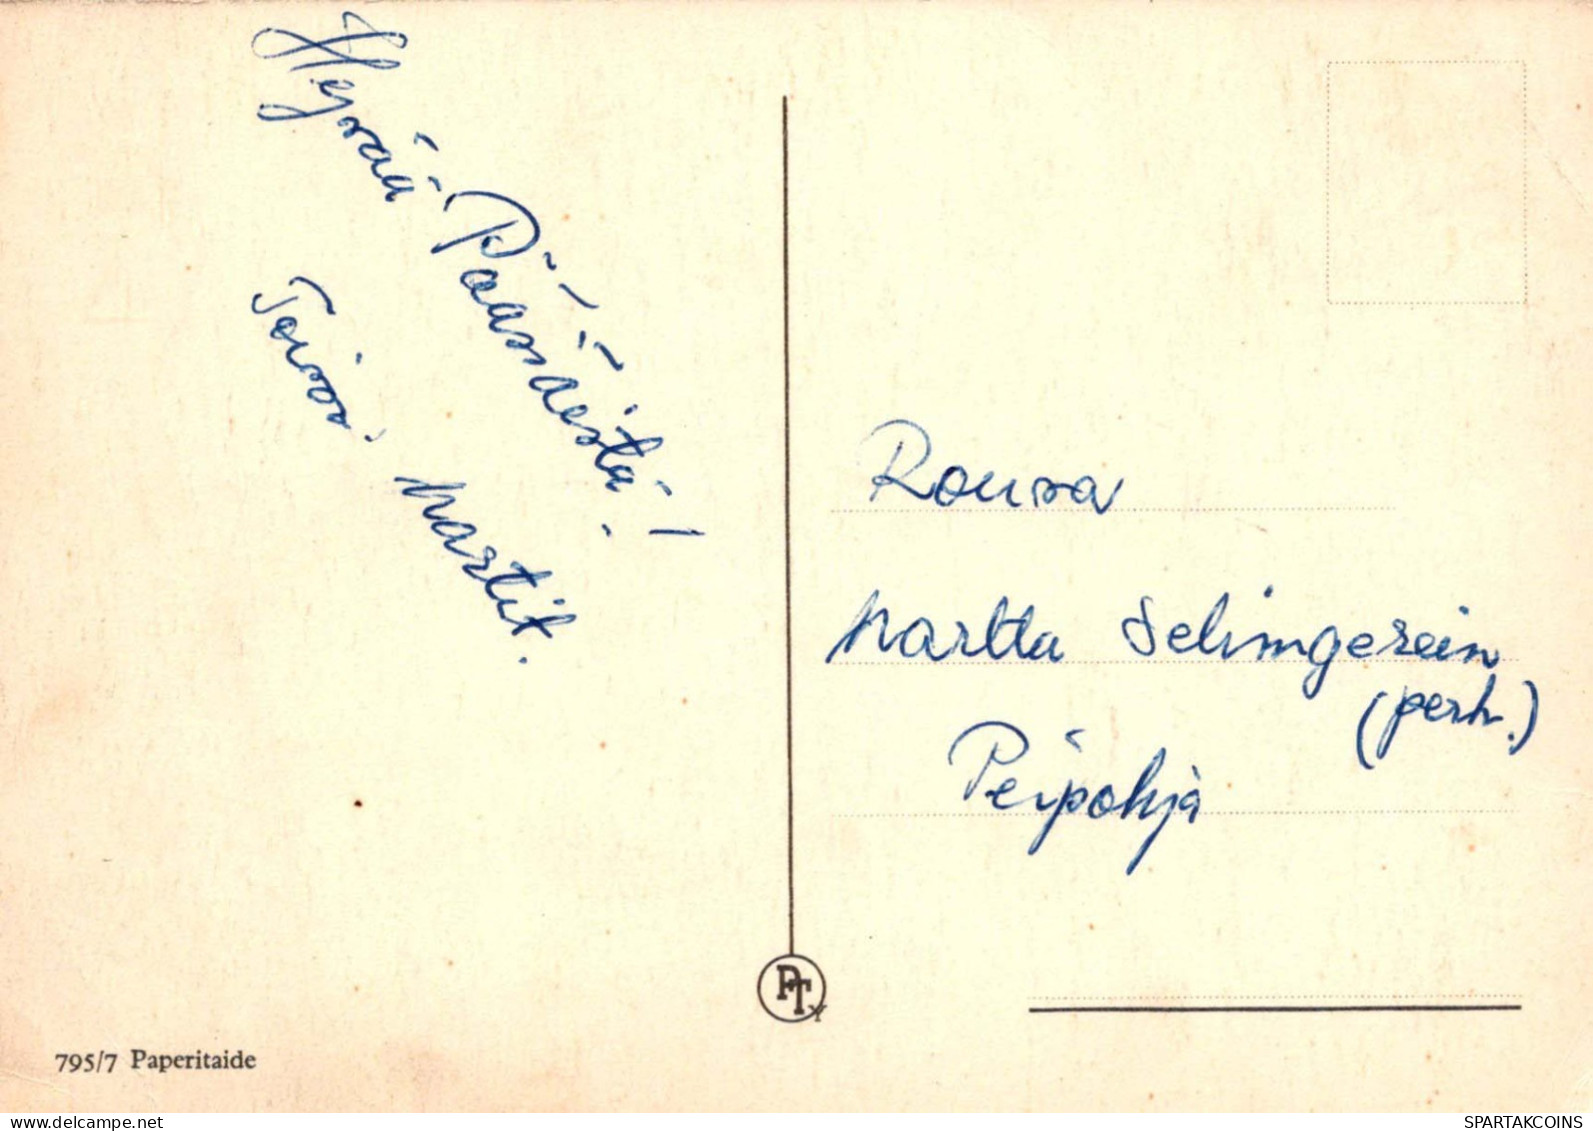 Hyvää Pääsiäistä!
Toivoo. Martit.
Rouva
Martta Selimgerein
(perh.)
Peipohja
PTY
795/7 Paperitaide
delcampe.net
SPARTAKCOINS